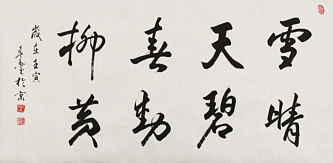 雪晴
天碧
春動
柳黄
歲在壬寅
於京